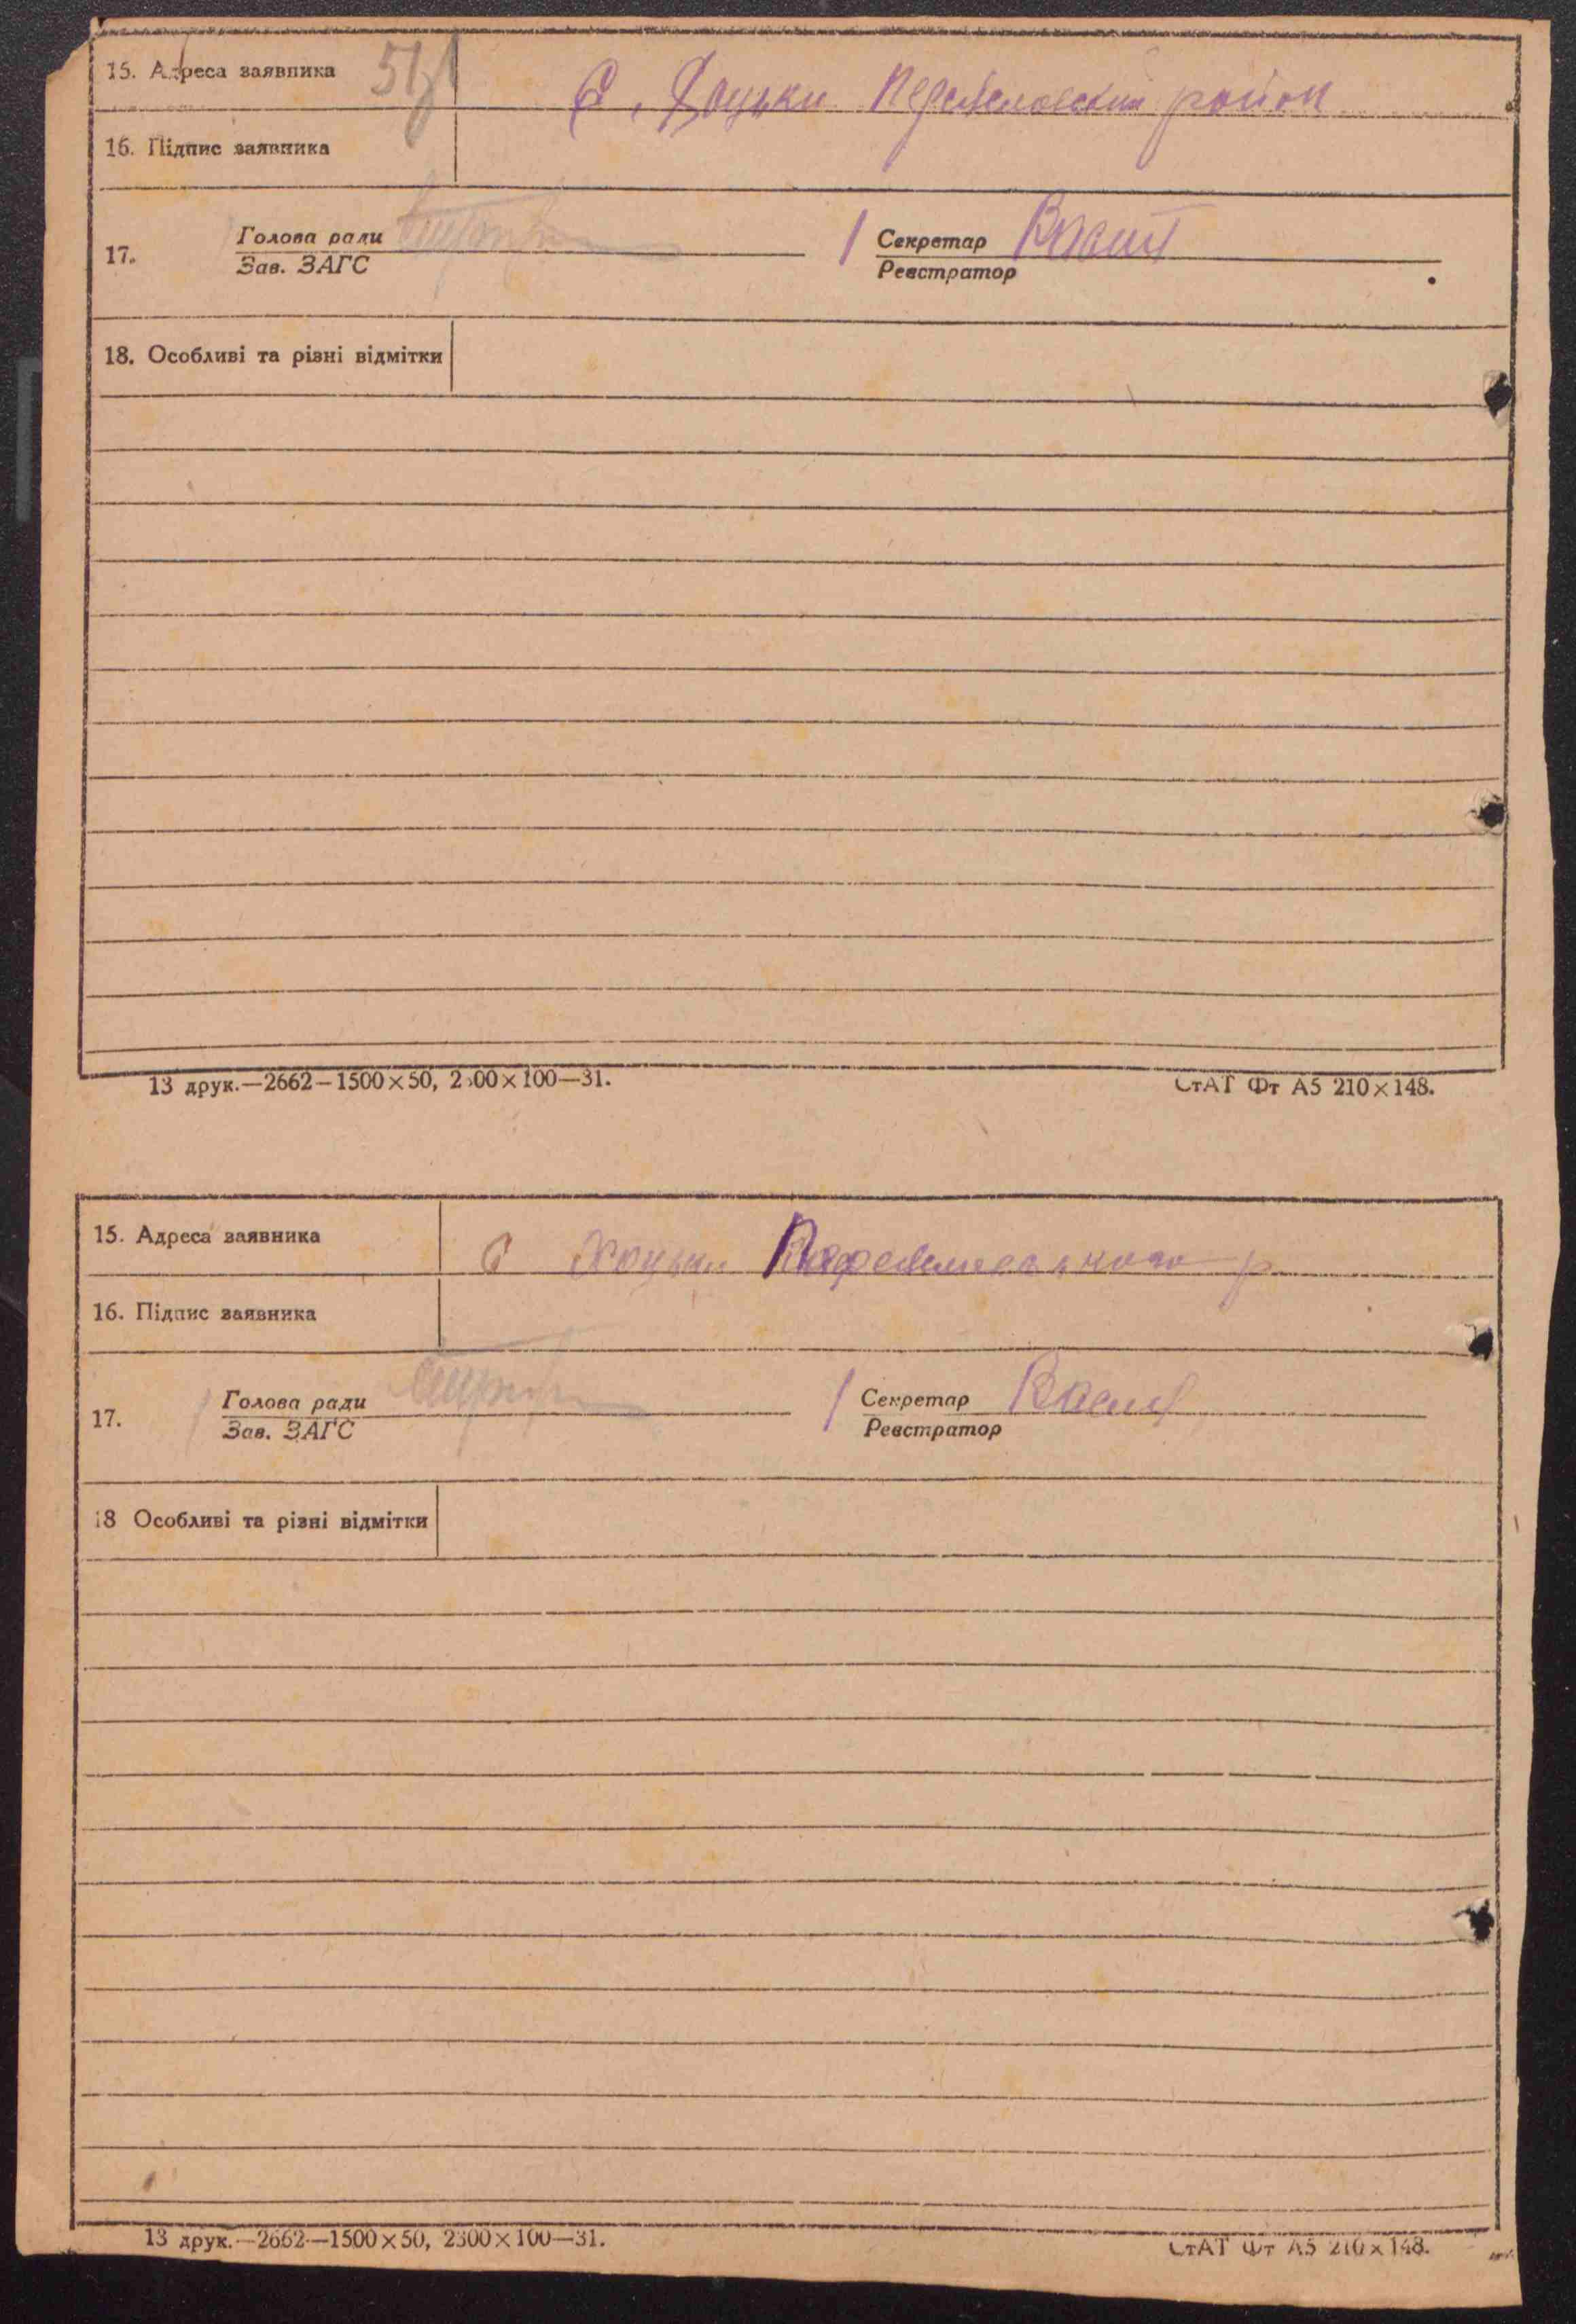 15. Адреса заявника
С. Хоцьки Переяславский район
16. Підпис заявника
17. Голова ради
Зав. ЗАГС
Секретар
Реєстратор
18. Особливі та різні відмітки
13 друк.—2662—1500×50, 2300×100—31. СтАТ Фт А5 210×148.
15. Адреса заявника
с Хоцьки
16. Підпис заявника
17. Голова ради
Зав. ЗАГС
Секретар
Реєстратор
18 Особливі та різні відмітки
13 друк.—2662—1500×50, 2300×100—31. СтАТ Фт А5 210×148.